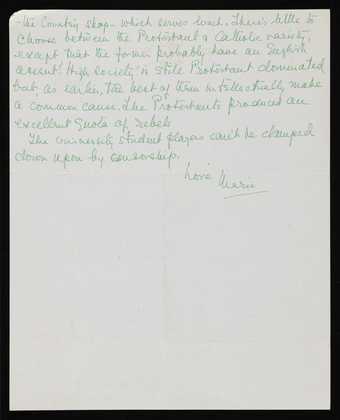 - the Country shop - which serves lunch. There's little to
choose between the Protestant & Catholic variety,
except that the former probably have an English
accent. High society is still Protestant dominated
but, as earlier, the best of them intellectually make
a common cause. The Protestants produced an
excellent quota of rebels.
The university student players can't be clamped
down upon by censorship.
Love
Marie